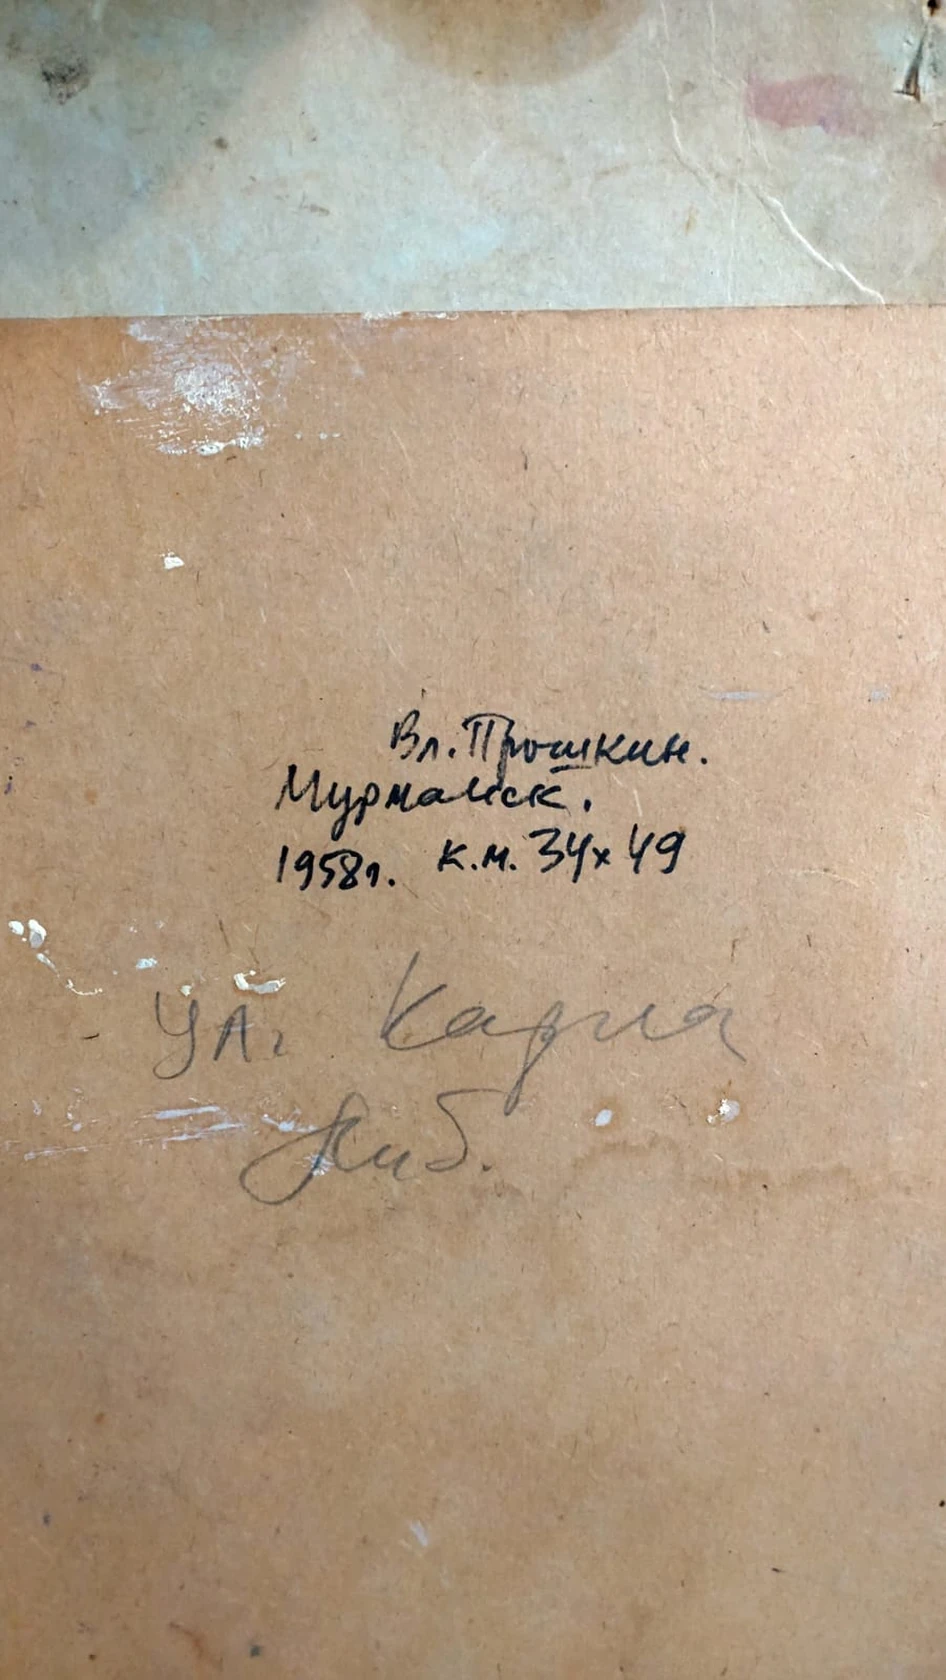 Вл. Прошкин.
Мурманск.
1958г. к.м. 34х49
ул. Карла
Либ.